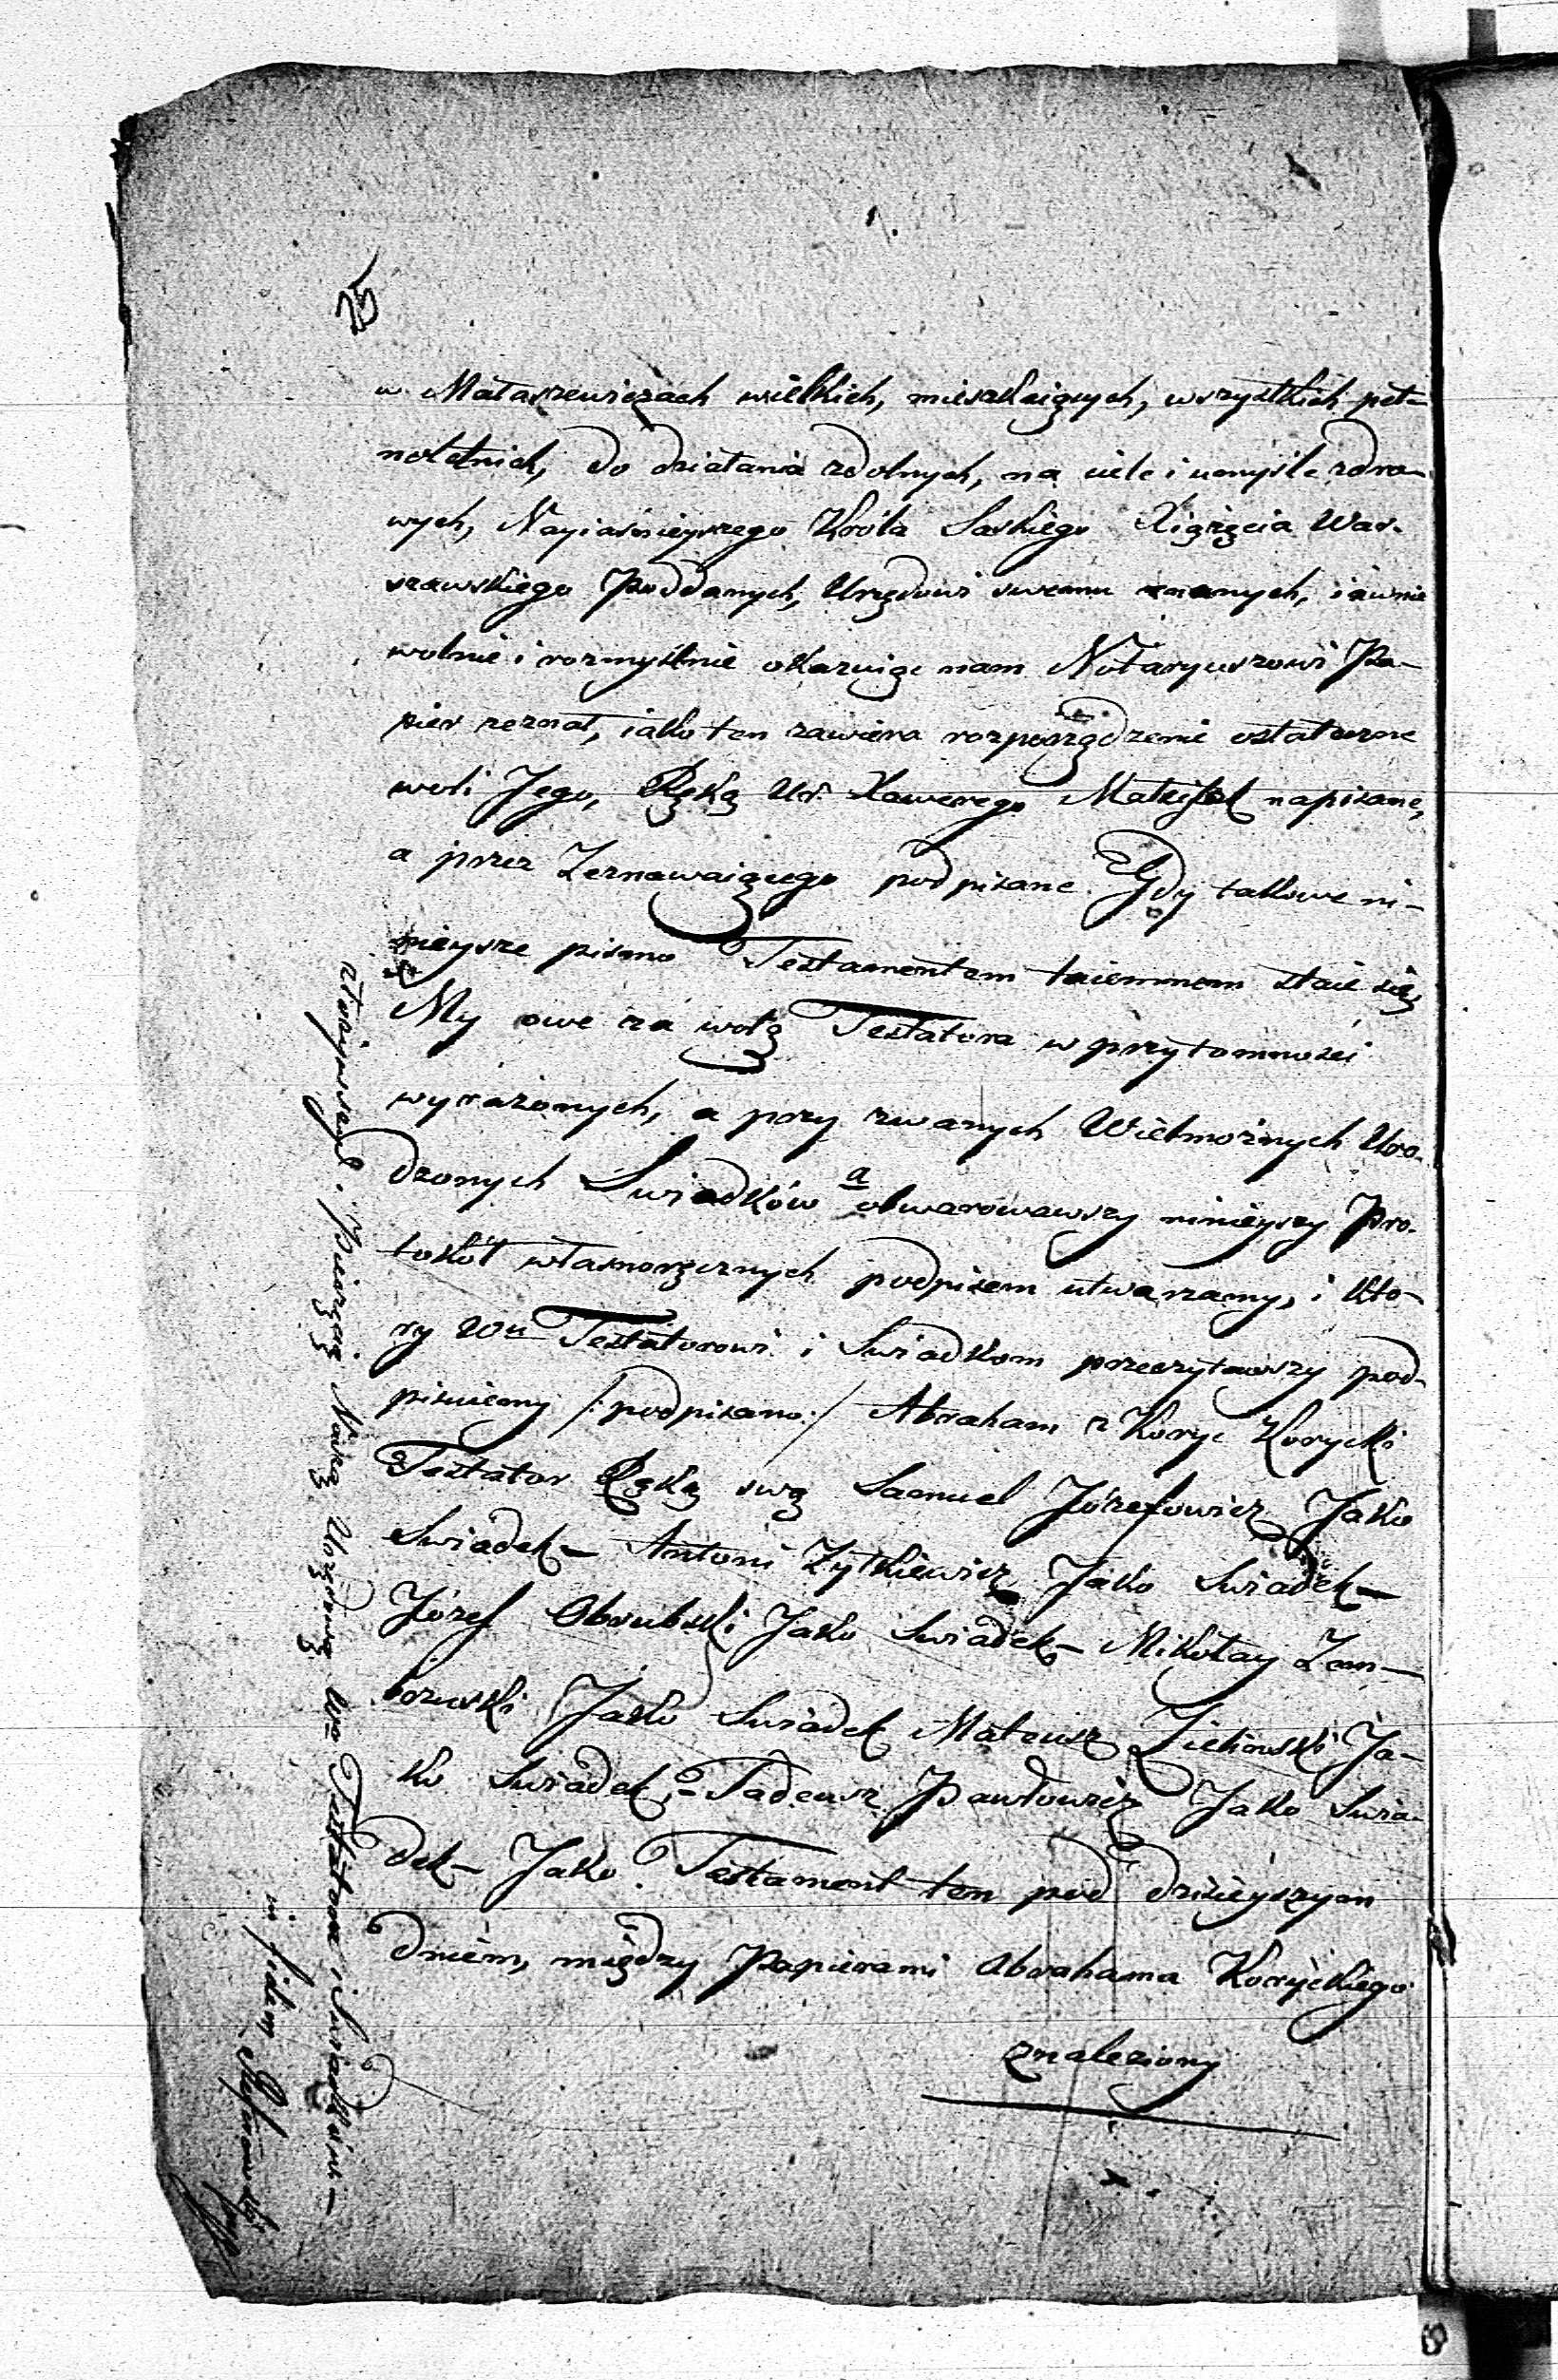 w Mataszewiczach wielkich, mieszkaiących, wszystkich peł-
noletnich, do działania zdolnych, na ciele i umyśle zdro-
wych, Nayiaśnieyszego Króla Saskiego Xiążęcia War-
szawskiego Poddanych, Urzędowi swemu znanych, iawnie
wolnie i rozmyślnie okazuiąc nam Notaryuszowi Pa-
pier zeznał, iako ten zawiera rozporządzenie ostateczne
woli Jego, Ręką Ur. Xawerego napisane,
a przez Zeznawaiącego podpisane. Gdy takowe ni-
nieysze pismo Testamentem taiemnem staie się,
My owe za wolą Testatora w przytomności
wyrażonych, a przyzwanych Wielmożnych Uro-
dzonych Swiadków a obwarowawszy ninieyszy Pro-
tokół własnoręcznych podpisem utwarzamy, i któ-
ry Testatorowi i Swiadkom przeczytawszy pod-
pisuiemy /:podpisano:/ Abraham z Koryc Korycki
Testator Ręką swą Samuel Józefowicz Jako
Swiadek – Antoni Żytkiewicz Jako Swiadek –
Józef Obrubski Jako Swiadek – Mikołay Zem-
brzuski Jako Swiadek Mateusz Zielinski Ja-
ko Swiadek, – Tadeusz Pawłowicz Jako Swia-
dek – Jako Testament ten pod dzisieyszym
dniem, między Papierami Abrahama Koryckiego
znaleziony
a Pieczęcią Naszą Urzędową Testatora i Swiadków –
in fidem